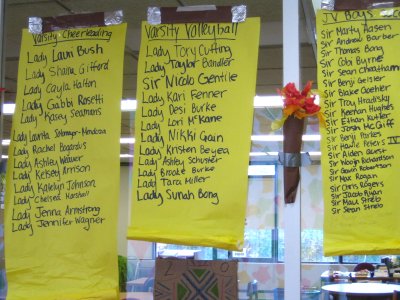 Varsity Cheerleading
Lady Lauri Bush
Lady Shana Gifford
Lady Cayla Halton
Lady Gabbi Rosetti
Lady Kasey Seamans
Lady Laurita
Lady Rachel Bogardus
Lady Ashley Weaver
Lady Kelsey Arrison
Lady Katelyn Johnson
Lady Chelsea Marshall
Lady Jenna Armstrong
Lady Jennifer Wagner
Varsity Volleyball
Lady Tory Cuffing
Lady Taylor Bandler
Sir Nicolo Gentile
Lady Kari Fenner
Lady Desi Burke
Lady Lori McKane
Lady Nikki Gain
Lady Kristen Beyea
Lady Ashley Schuster
Lady Brooke Burke
Lady Tara Miller
Lady Sunah Bong
JV Boys
Sir Marty Aasen
Sir Andrew Barber
Sir Thomas Bang
Sir Cobi Byrne
Sir Sean Cheatham
Sir Benji Geisler
Sir Blake Goehler
Sir Troy Hradisky
Sir Keenan Hughes
Sir Ethan Kutler
Sir Josh McGiff
Sir Benji Parkes
Sir Howie Peters IV
Sir Aiden
Sir Woojin Richardson
Sir Gavin Robertson
Sir Max Rogan
Sir Chris Rogers
Sir Jacob Ryan
Sir Maxx Streb
Sir Sean Streib